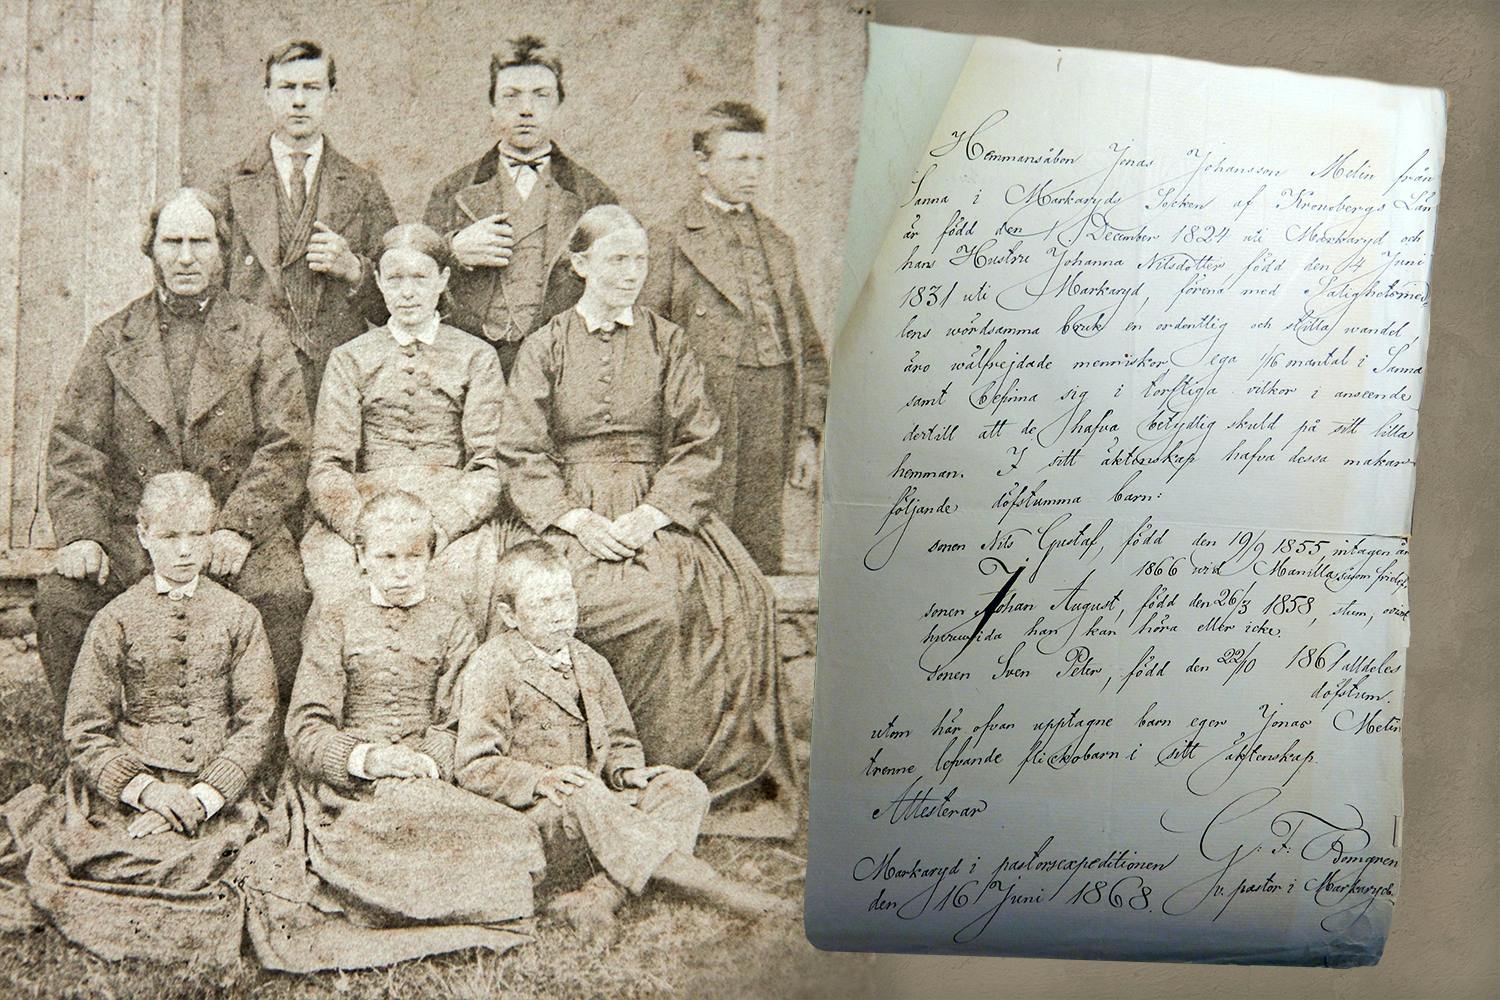 Hemmansåbon Jonas Johansson Melin från
Sanna i Markaryds Socken af Kronobergs Län
är född den 1 December 1824 uti Markaryd och
hans Hustru Johanna Nilsdotter född den 4 Juni
1831 uti Markaryd, förena med Salighetsmed-
lens wördsamma bruk en ordentlig och stilla wandel,
äro wälfrejdade menniskor ega 1/16 mantal i Sanna
samt befinna sig i torftiga vilkor i anseende
dertill att de hafva betydlig skuld på sitt lilla
hemman. I sitt äktenskap hafva dessa makar
följande döfstumma barn:
sonen Nils Gustaf, född den 19/9 1855 intagen år
1866 wid Manilla såsom frielef,
sonen Johan August, född den 26/3 1858, stum,
huruvida han kan höra eller icke.
sonen Sven Peter, född den 22/10 1861 alldeles
döfstum.
utom här ofvan upptagne barn eger Jonas Melin
trenne lefvande flickobarn i sitt äktenskap.
Attesterar
G. F. Bomgren
Markaryd i pastorsexpeditionen
v. pastor i Markaryd.
den 16 Juni 1868.